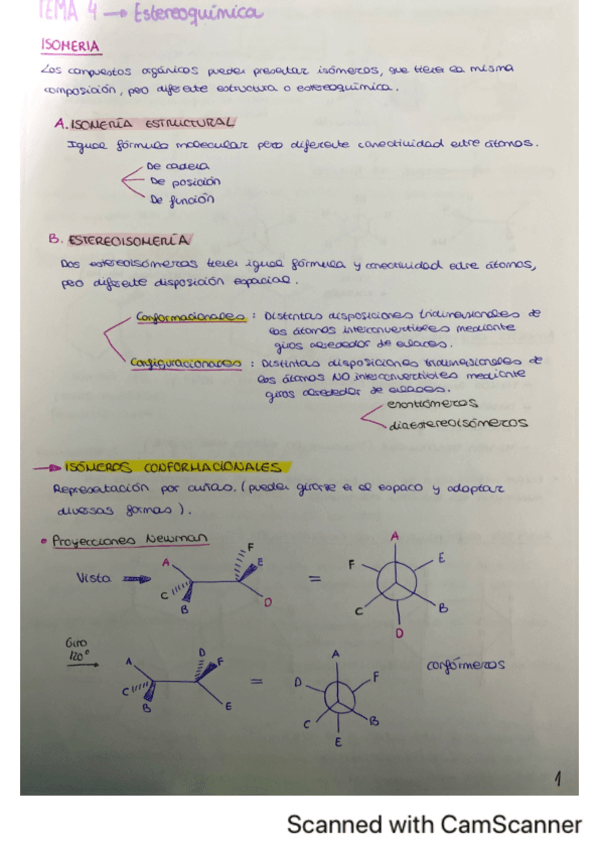 TEMA 4 → Estereoquímica
ISOMERIA
Los compuestos orgánicos pueden presentar isómeros, que tienen la misma
composición, pero diferente estructura o estereoquímica.
A. ISOMERÍA ESTRUCTURAL
Igual fórmula molecular pero diferente conectividad entre átomos.
De cadena
De posición
De función
B. ESTEREOISOMERÍA
Dos estereoisómeros tienen igual fórmula y conectividad entre átomos,
pero diferente disposición espacial.
Conformacionales : Distintas disposiciones tridimensionales de
los átomos interconvertibles mediante
giros alrededor de enlaces.
Configuracionales : Distintas disposiciones tridimensionales de
los átomos NO interconvertibles mediante
giros alrededor de enlaces.
enantiómeros
diaestereoisómeros
→ ISÓMEROS CONFORMACIONALES
Representación por cuñas. (pueden girarse en el espacio y adoptar
diversas formas).
• Proyecciones Newman
Vista
A
C
B
F
E
D
=
A
F
E
C
B
D
Giro
120°
A
C
B
D
F
E
=
A
D
F
C
B
E
confórmeros
1
Scanned with CamScanner